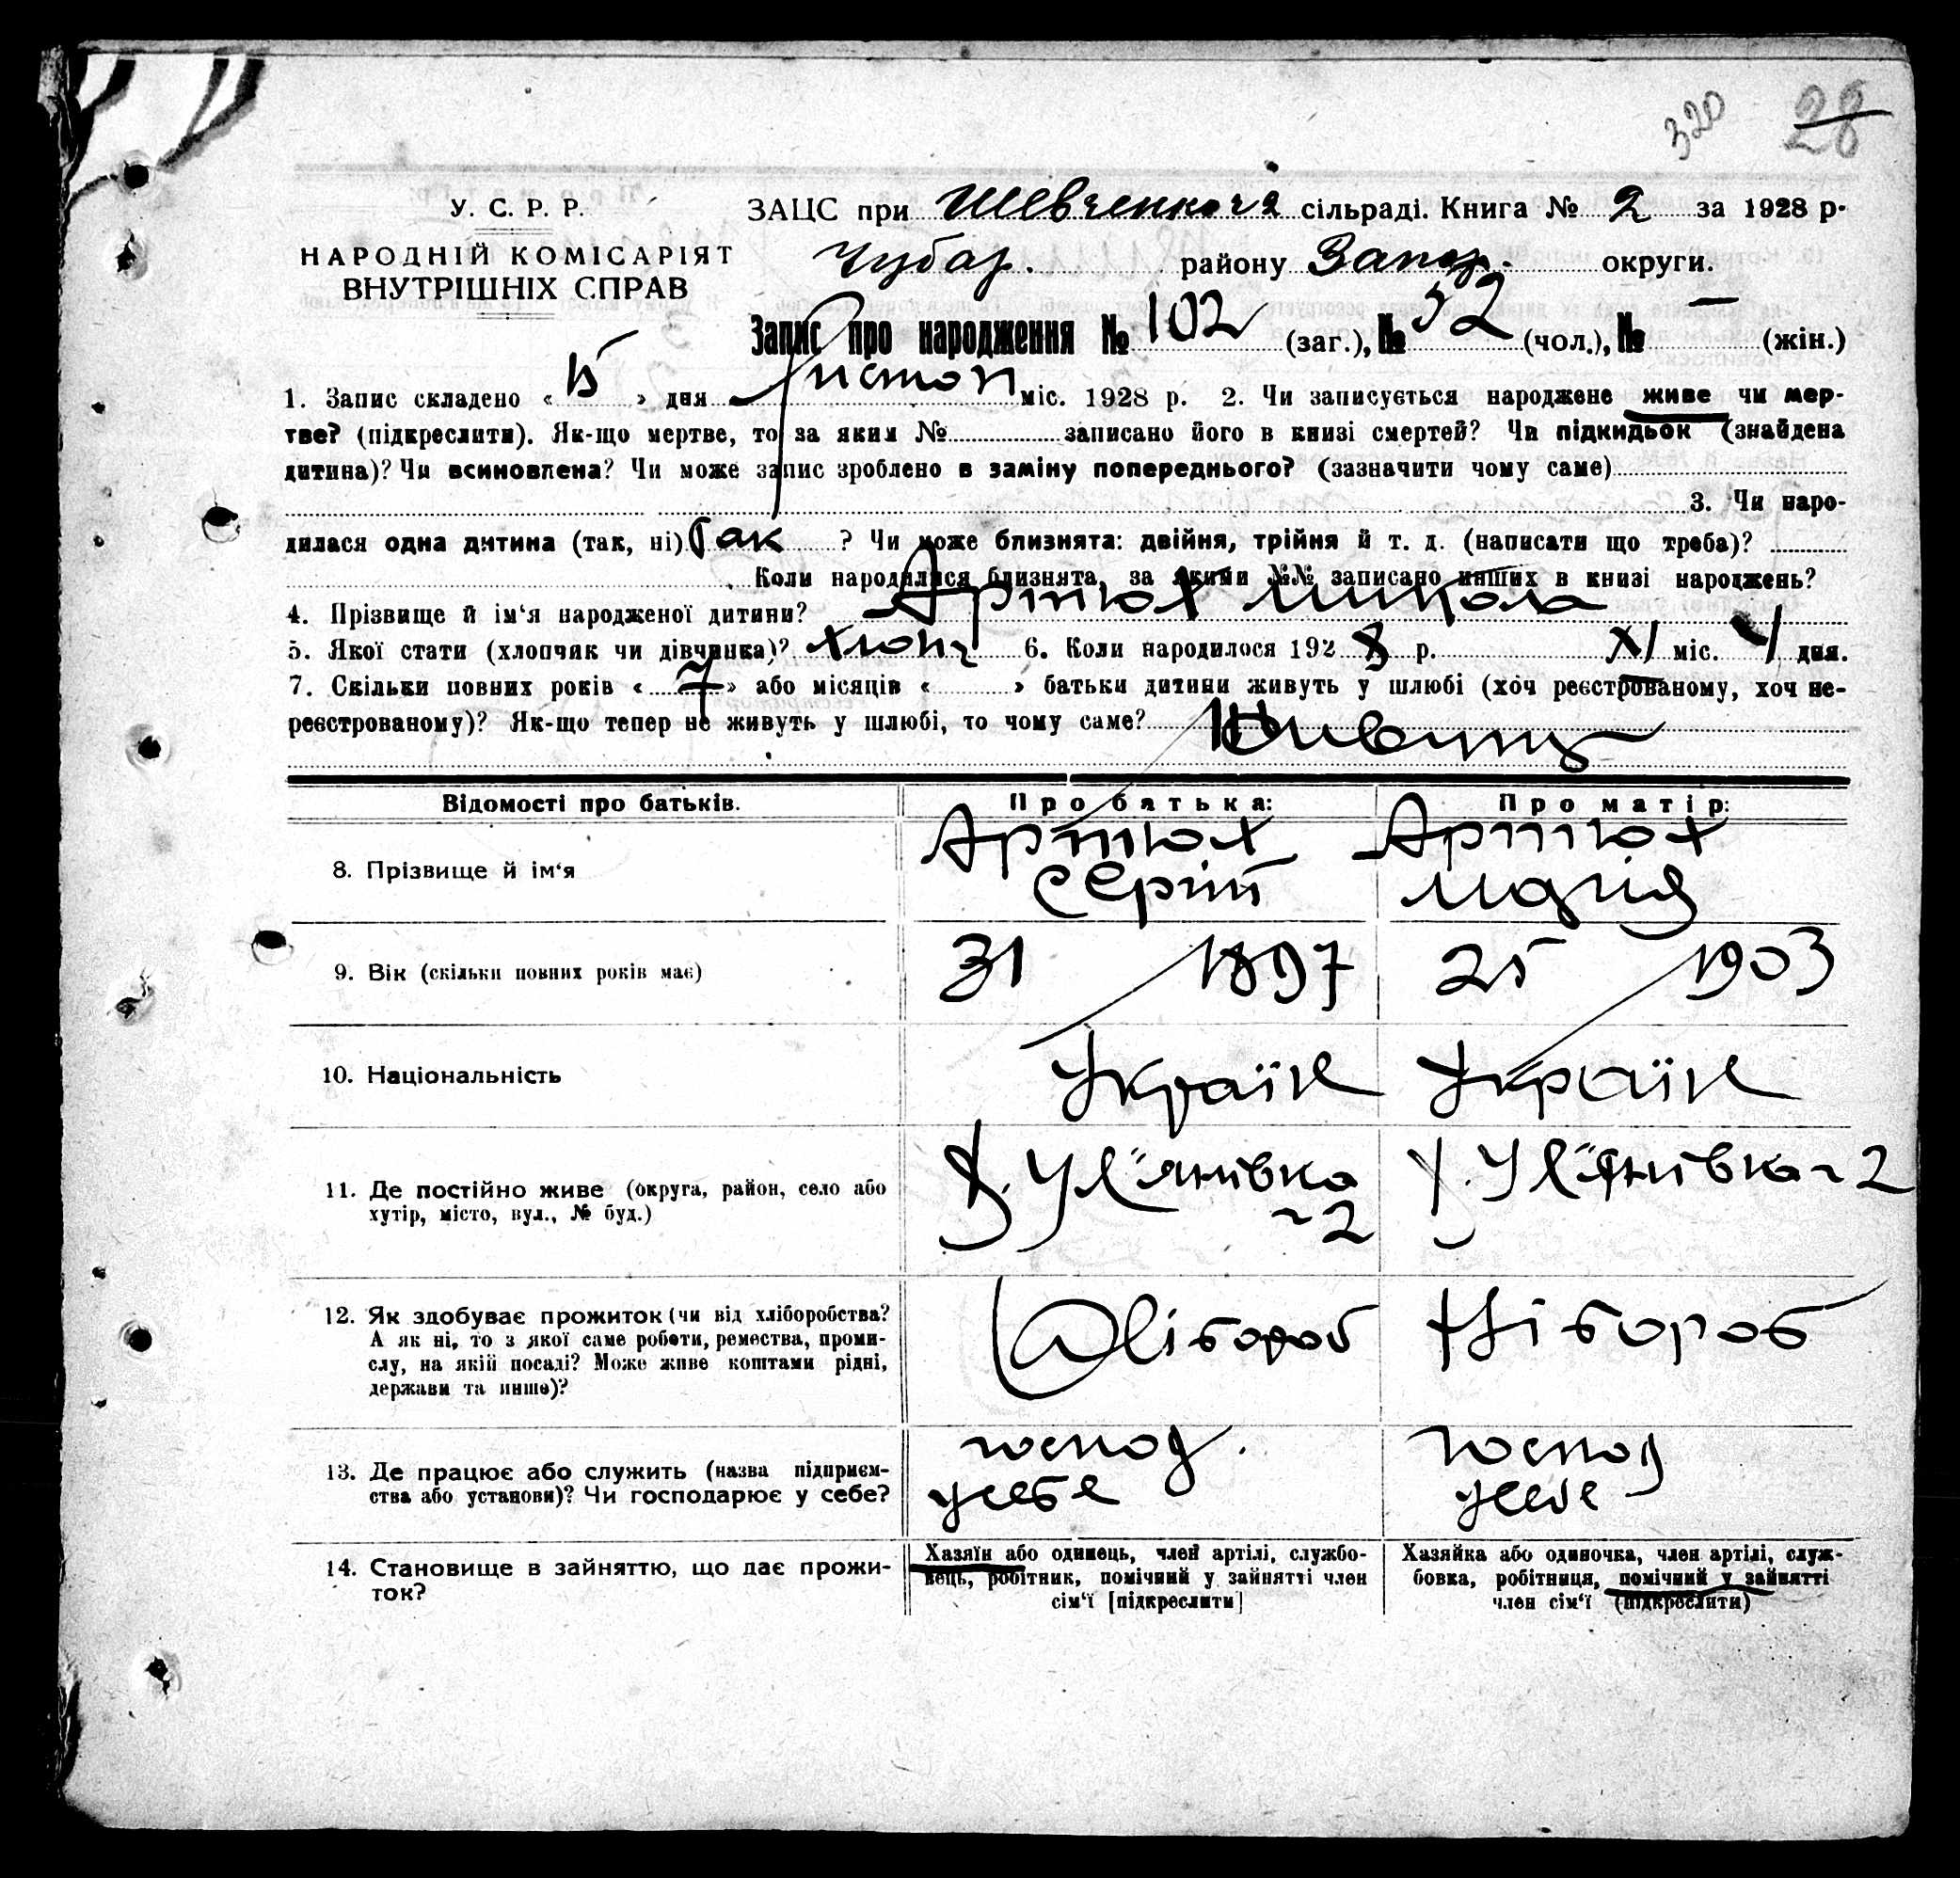 320 28
У. С. Р. Р.
НАРОДНІЙ КОМІСАРІЯТ
ВНУТРІШНІХ СПРАВ
ЗАЦС при сільраді. Книга № 2 за 1928 р.
Чубар. району Запор. округи.
Запис про народження № 102 (заг.), № 52 (чол.), № — (жін.)
1. Запис складено « 15 » дня Листоп міс. 1928 р. 2. Чи записується народжене живе чи мер-
тве? (підкреслити). Як-що мертве, то за яким № записано його в книзі смертей? Чи підкидьок (знайдена
дитина)? Чи всиновлена? Чи може запис зроблено в заміну попереднього? (зазначити чому саме)
3. Чи наро-
дилася одна дитина (так, ні) Так ? Чи може близнята: двійня, трійня й т. д. (написати що треба)?
Коли народилися близнята, за якими №№ записано инших в книзі народжень?
4. Прізвище й ім‘я народженої дитини? Артюх Микола
5. Якої стати (хлопчяк чи дівчинка)? хлопч 6. Коли народилося 1928 р. XI міс. 4 дня.
7. Скільки повних років « 7 » або місяців « » батьки дитини живуть у шлюбі (хоч реєстрованому, хоч не-
реєстрованому)? Як-що тепер не живуть у шлюбі, то чому саме? Живуть
Відомості про батьків. Про батька: Про матір:
8. Прізвище й ім‘я Артюх Сергій Артюх Марія
9. Вік (скільки повних років має) 31 1897 25 1903
10. Національність Україн Україн
11. Де постійно живе (округа, район, село або
хутір, місто, вул., № буд.) Ул'янівка 2 Ул'янівка 2
12. Як здобуває прожиток (чи від хліборобства?
А як ні, то з якої саме роботи, ремества, проми-
слу, на якій посаді? Може живе коштами рідні,
держави та инше)? Хлібороб Хлібороб
13. Де працює або служить (назва підприєм-
ства або установи)? Чи господарює у себе? господ. у себе господ у себе
14. Становище в зайняттю, що дає прожи-
ток?
Хазяїн або одинець, член артілі, службо-
вець, робітник, помічний у зайнятті член
сім‘ї [підкреслити]
Хазяйка або одиночка, член артілі, служ-
бовка, робітниця, помічний у зайнятті
член сім‘ї (підкреслити)